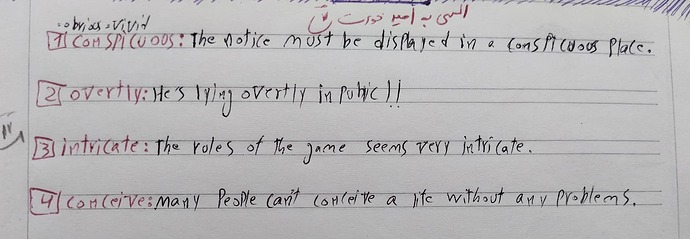 الهی به امید خودت
:obvious=vivid
1 conspicuous: The notice must be displayed in a conspicuous place.
2 overtly: He's lying overtly in public!!
3 intricate: The rules of the game seems very intricate.
4 conceive: Many people can't conceive a life without any problems.